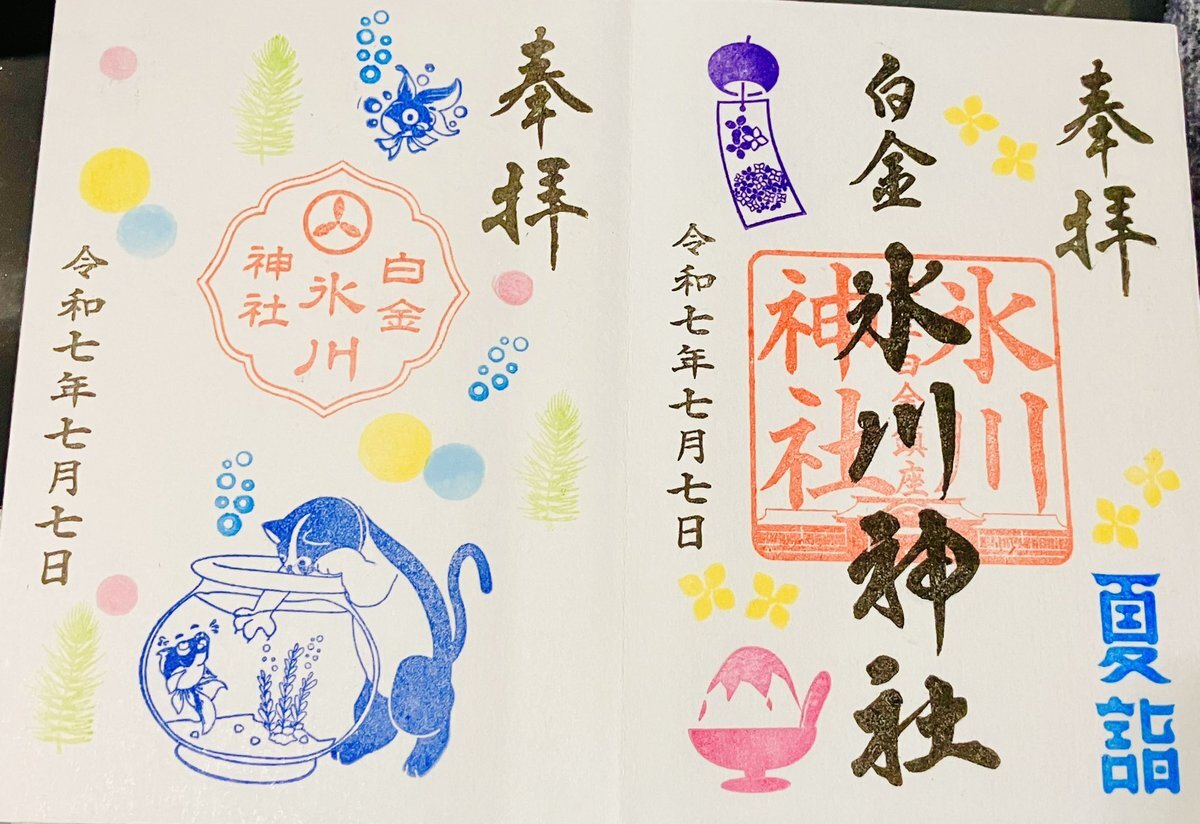 奉拝
夏詣
白金
氷川神社
氷川
白金鎮座
神社
令和七年七月七日
奉拝
白金
氷川
神社
令和七年七月七日